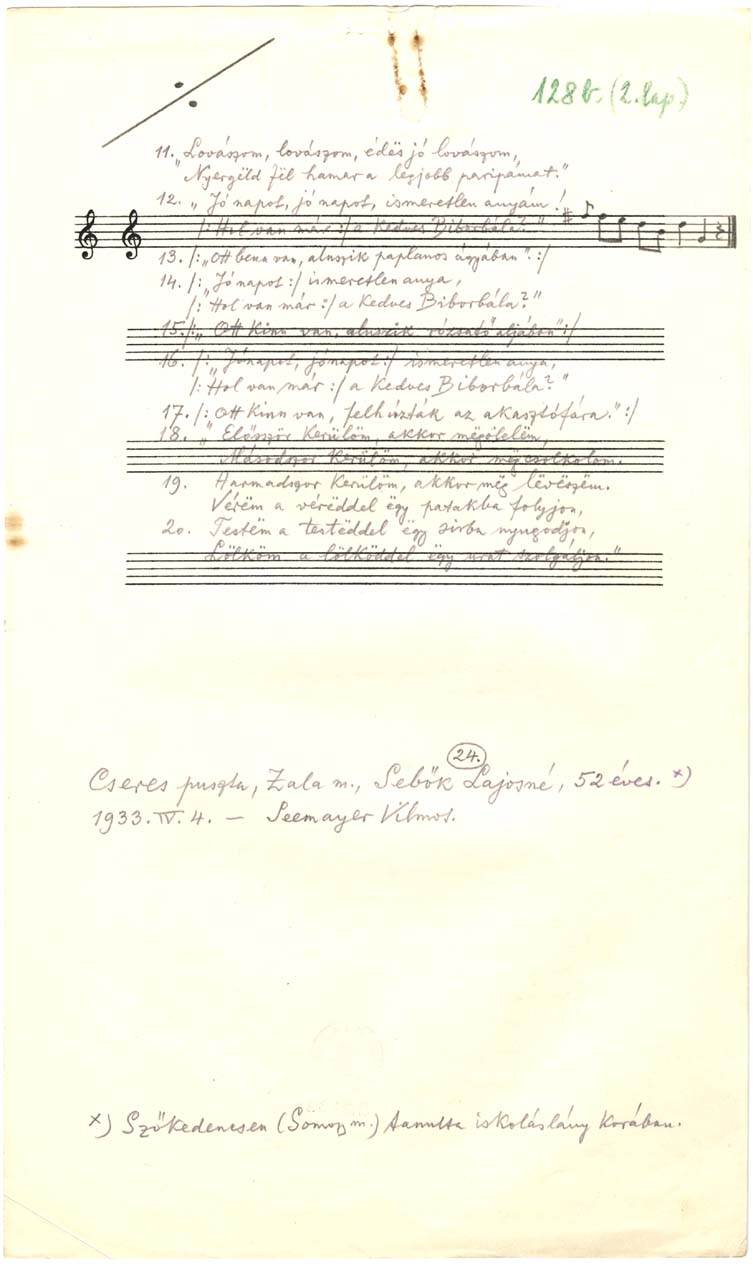 128 b. (2. lap)
11. „Lovászom, lovászom, édës jó lovászom,
Nyergëld fël hamar a legjobb paripámat."
12. „Jó napot, jó napot, ismeretlen anyám!
/: Hol van már :/ a kedves Biborbála?"
13. /: „Ott benn van, aluszik paplanos ágyában". :/
14. /: „Jó napot :/ ismeretlen anya,
/: Hol van már :/ a kedves Biborbála?"
15. /: „Ott kinn van, aluszik rózsatő aljában" :/
16. /: „Jónapot, jónapot :/ ismeretlen anya,
/: Hol van már :/ a kedves Biborbála?"
17. /: Ott kinn van, felhúzták az akasztófára." :/
18. „Először kerülöm, akkor mëgölelëm,
Másodszor kerülöm, akkor mëgcsolkolom.
19. Harmadszor kerülöm, akkor mëg lëvëszëm.
Vérëm a vérëddel ëgy patakba folyjon,
20. Testëm a testëddel ëgy sirba nyugodjon,
Lölköm a lölköddel ëgy urat szolgáljon."
24.
Cseres puszta, Zala m., Sebők Lajosné, 52 éves. x)
1933. IV. 4. — Seemayer Vilmos.
x) Szőkedencsen (Somogy m.) tanulta iskoláslány korában.